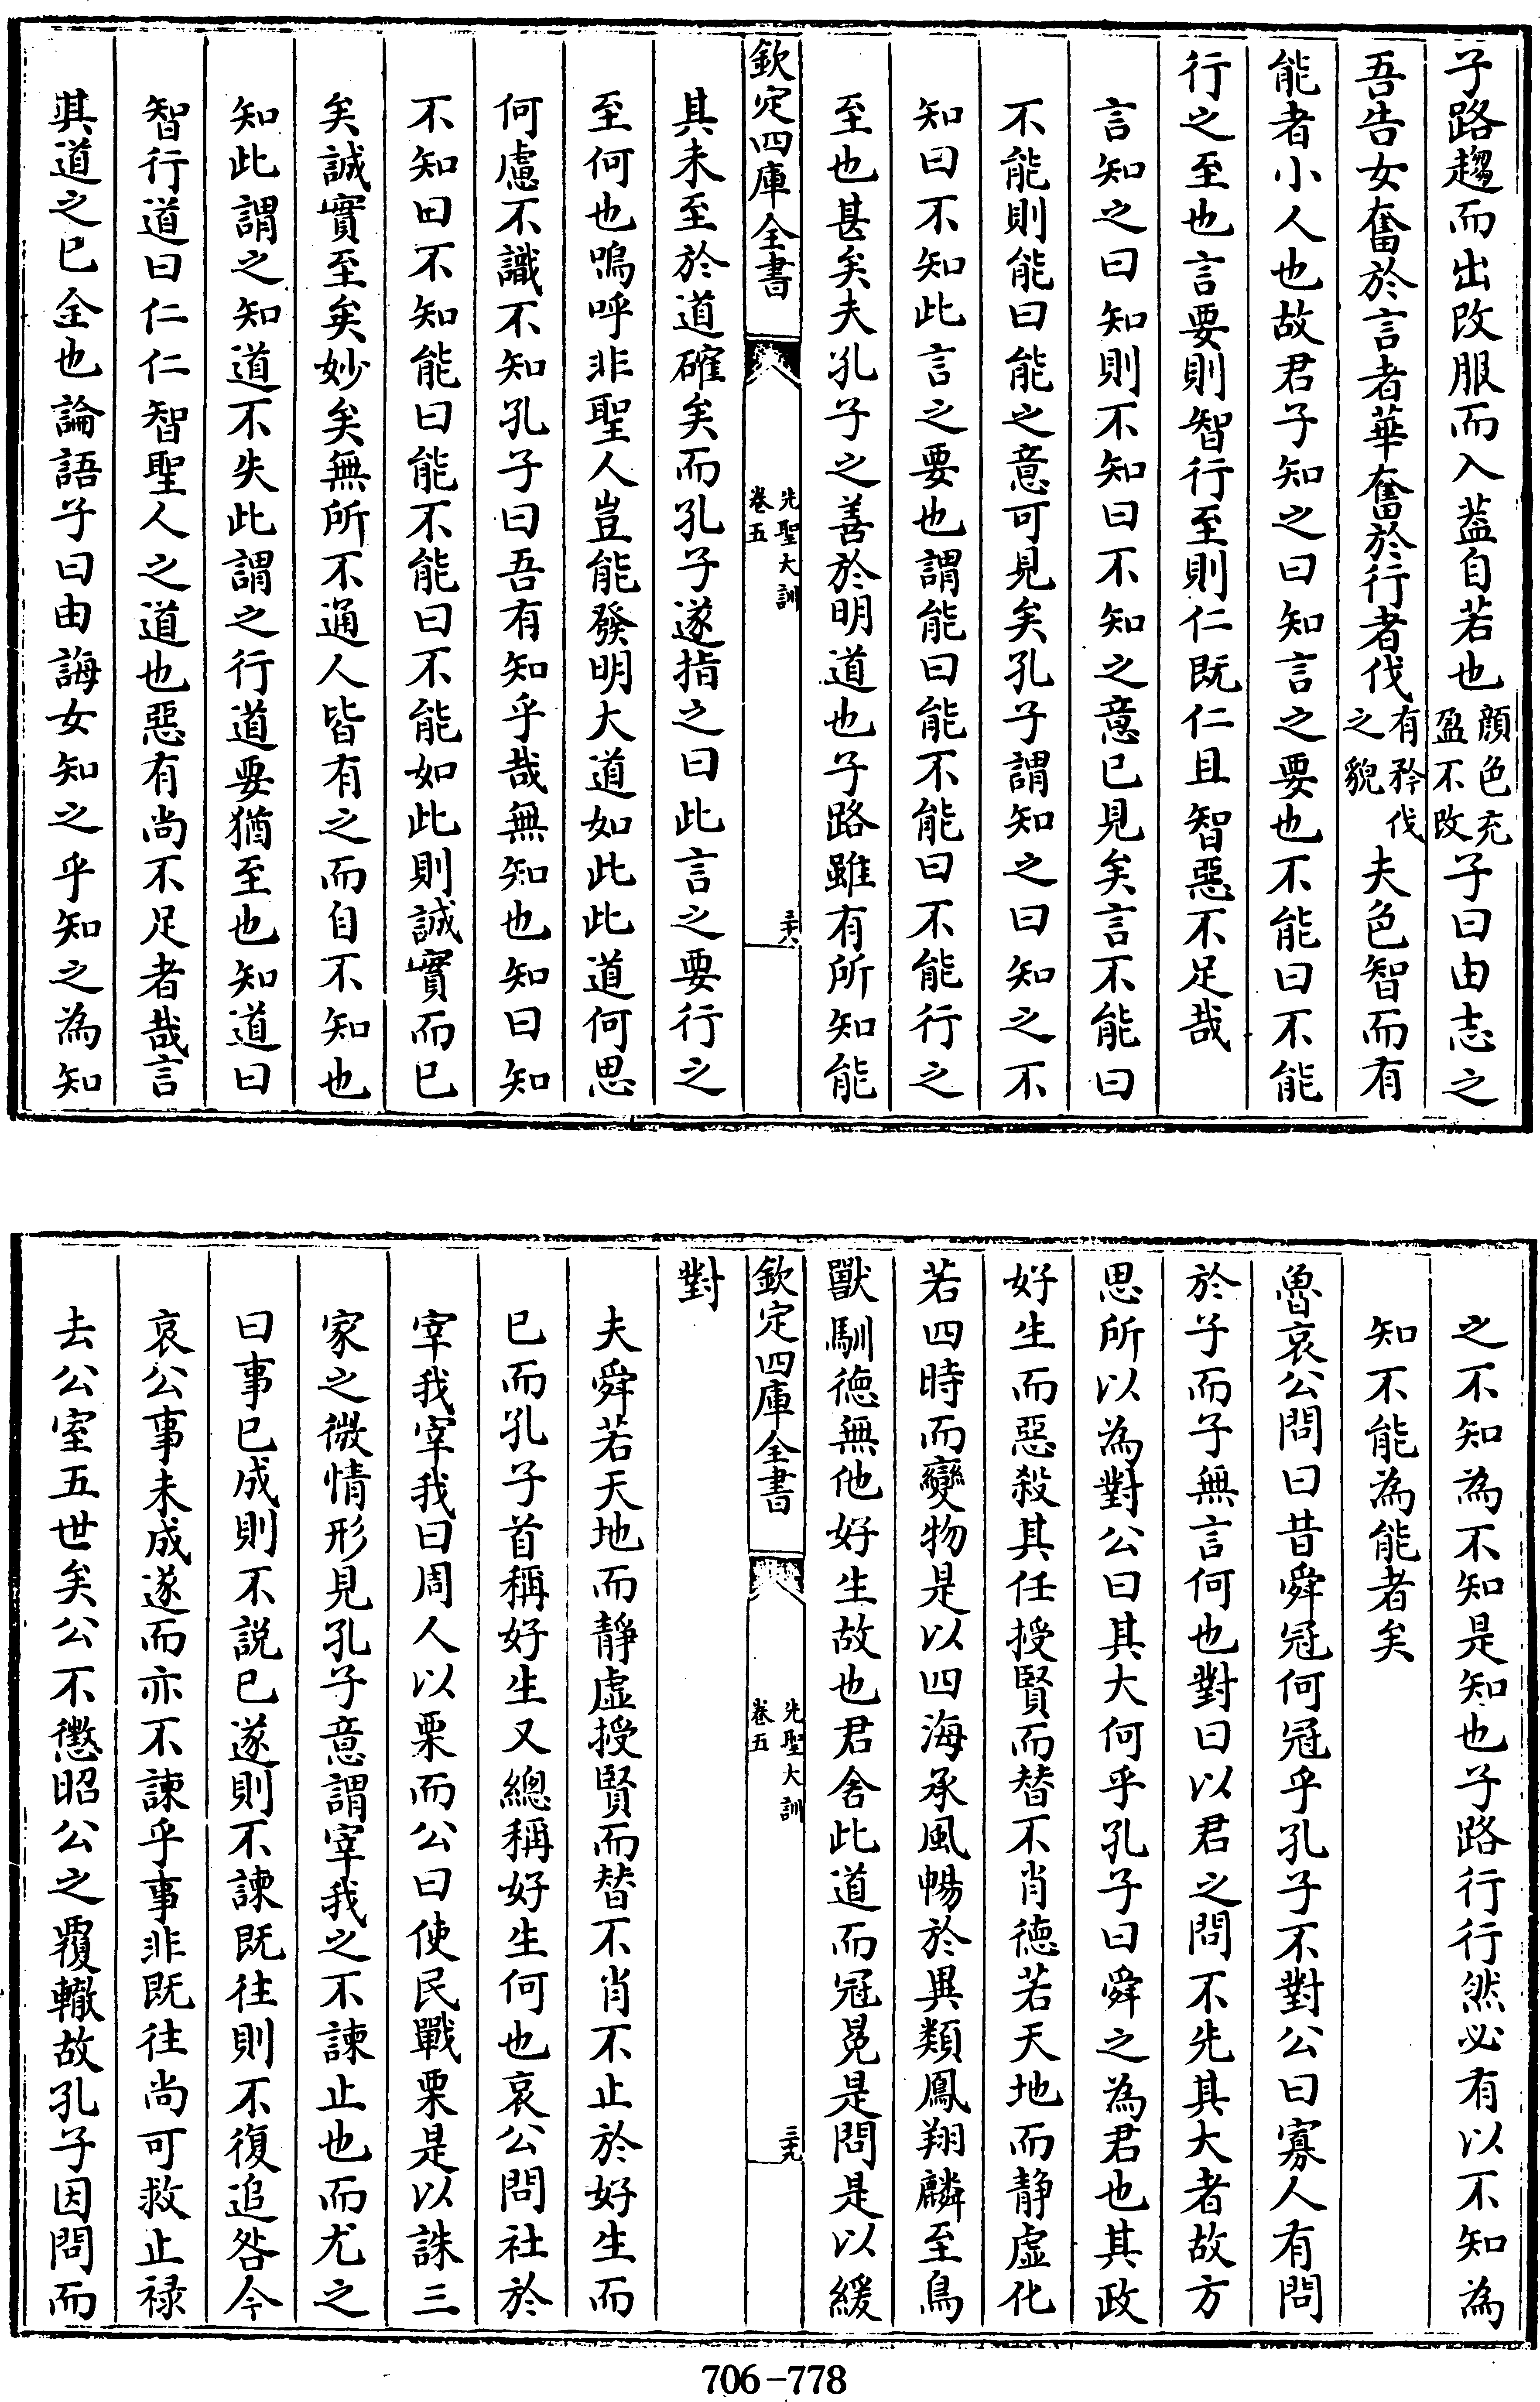 子路趨而出改服而入葢自若也顔色充盈不改子曰由志之
吾告女奮於言者華奮於行者伐有矜伐之貌夫色智而有
能者小人也故君子知之曰知言之要也不能曰不能
行之至也言要則智行至則仁既仁且智惡不足哉
言知之曰知則不知曰不知之意已見矣言不能曰
不能則能曰能之意可見矣孔子謂知之曰知之不
知曰不知此言之要也謂能曰能不能曰不能行之
至也甚矣夫孔子之善於明道也子路雖有所知能
欽定四庫全書
先聖大訓
卷五
三十八
其未至於道確矣而孔子遂指之曰此言之要行之
至何也嗚呼非聖人豈能發明大道如此此道何思
何慮不識不知孔子曰吾有知乎哉無知也知曰知
不知曰不知能曰能不能曰不能如此則誠實而已
矣誠實至矣妙矣無所不通人皆有之而自不知也
知此謂之知道不失此謂之行道要猶至也知道曰
智行道曰仁仁智聖人之道也惡有尚不足者哉言
其道之已全也論語子曰由誨女知之乎知之為知
之不知為不知是知也子路行行然必有以不知為
知不能為能者矣
魯哀公問曰昔舜冠何冠乎孔子不對公曰寡人有問
於子而子無言何也對曰以君之問不先其大者故方
思所以為對公曰其大何乎孔子曰舜之為君也其政
好生而惡殺其任授賢而替不肖德若天地而靜虛化
若四時而變物是以四海承風暢於異類鳳翔麟至鳥
獸馴德無他好生故也君舍此道而冠冕是問是以緩
欽定四庫全書
先聖大訓
卷五
三十九
對
夫舜若天地而靜虛授賢而替不肖不止於好生而
已而孔子首稱好生又總稱好生何也哀公問社於
宰我宰我曰周人以栗而公曰使民戰栗是以誅三
家之微情形見孔子意謂宰我之不諫止也而尤之
曰事已成則不說已遂則不諫既往則不復追咎今
哀公事未成遂而亦不諫乎事非既往尚可救止祿
去公室五世矣公不懲昭公之覆轍故孔子因問而
706-778